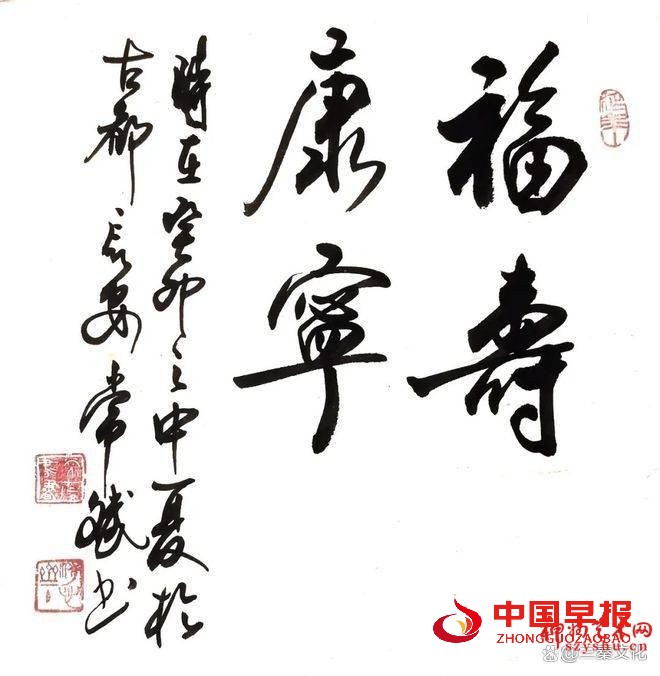 福壽
康寧
時在癸卯之中夏於
古都長安常斌书
中国早报
ZHONGGUOZAOBAO
szyshu.cn
三秦文化